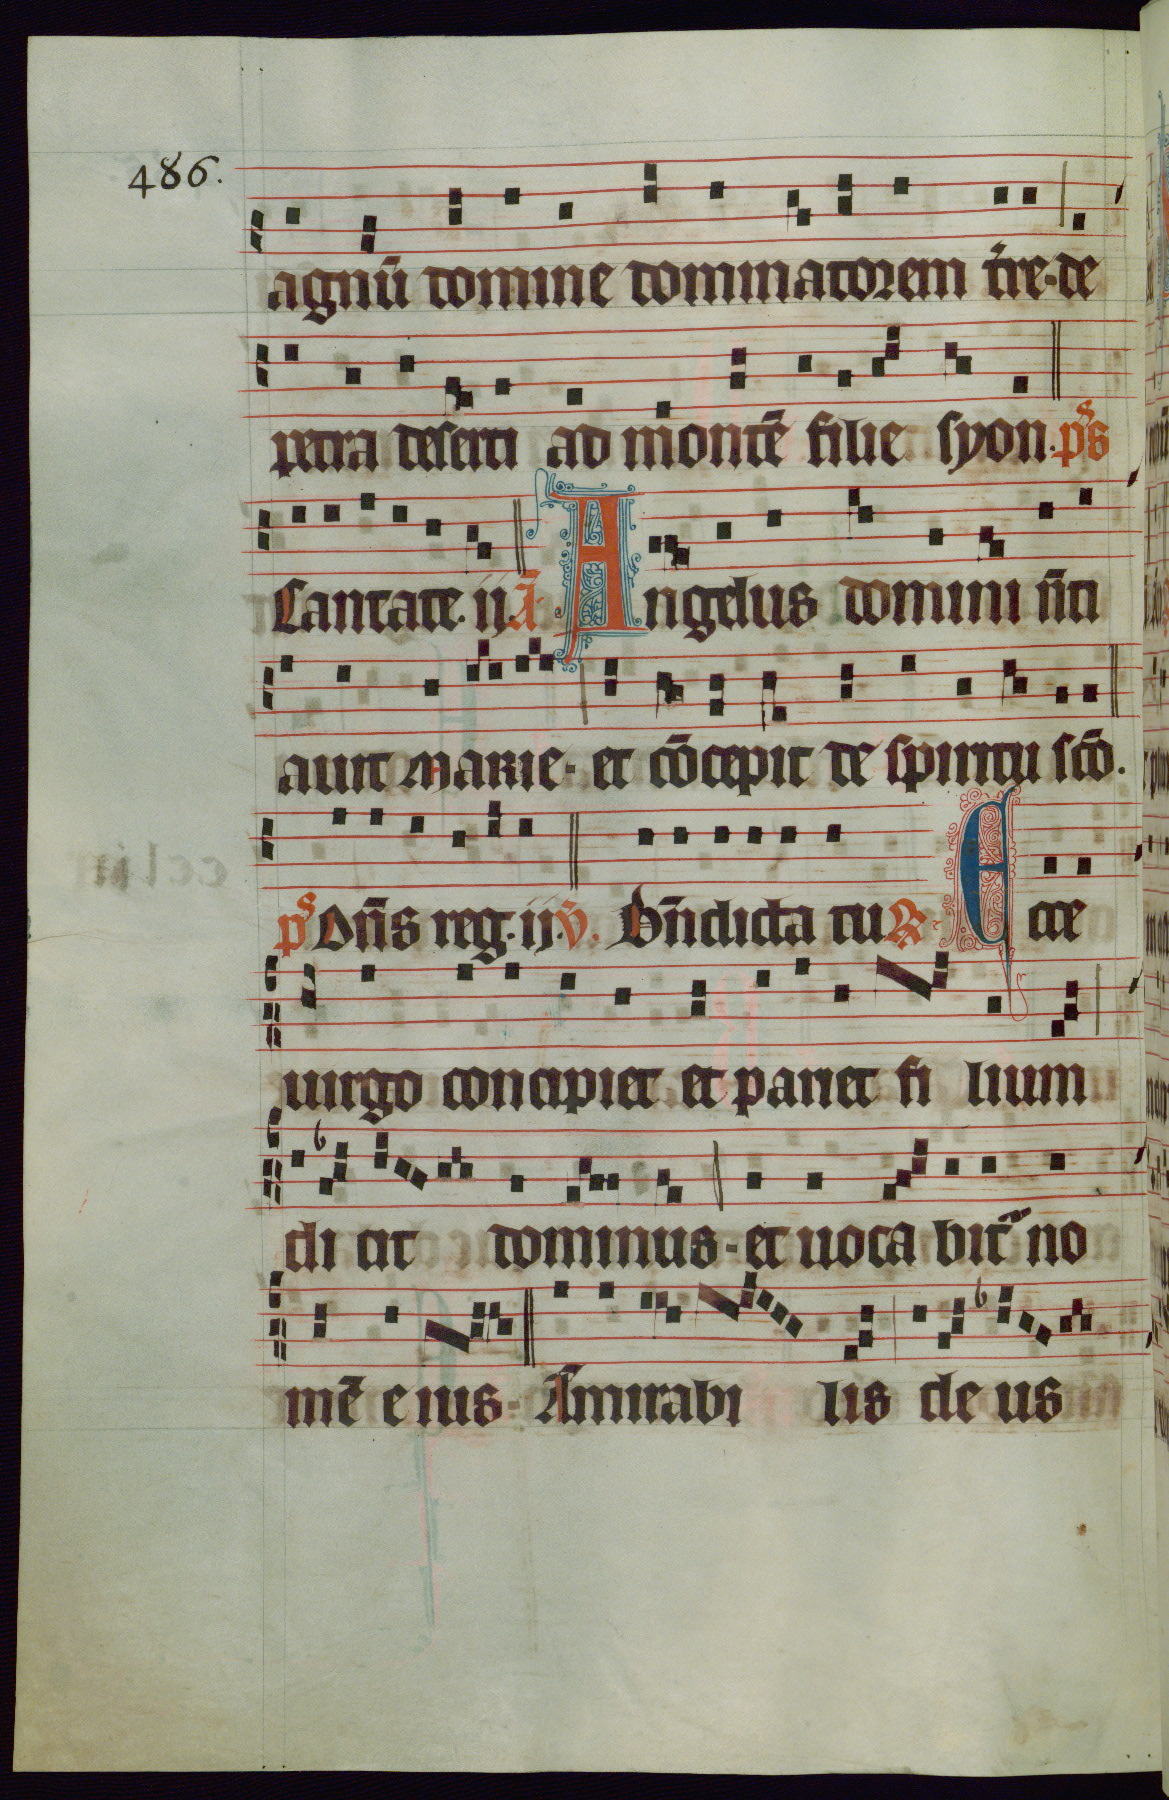 486.
agnū domine dominatorem t̄re·de
petra deserti ad montē filie syon. p̄s
Cantate.ij. Ā. Angelus domini n̄ti
auit Marie· et cōcepit de spiritu sc̄o.
p̄s Dn̄s reg.ij. v̄. Bn̄dicta tu R̄. Ecce
uirgo concipiet et pariet fi lium
di cit dominus· et uoca bit᷑ no
mē e ius· Ammirabi lis de us